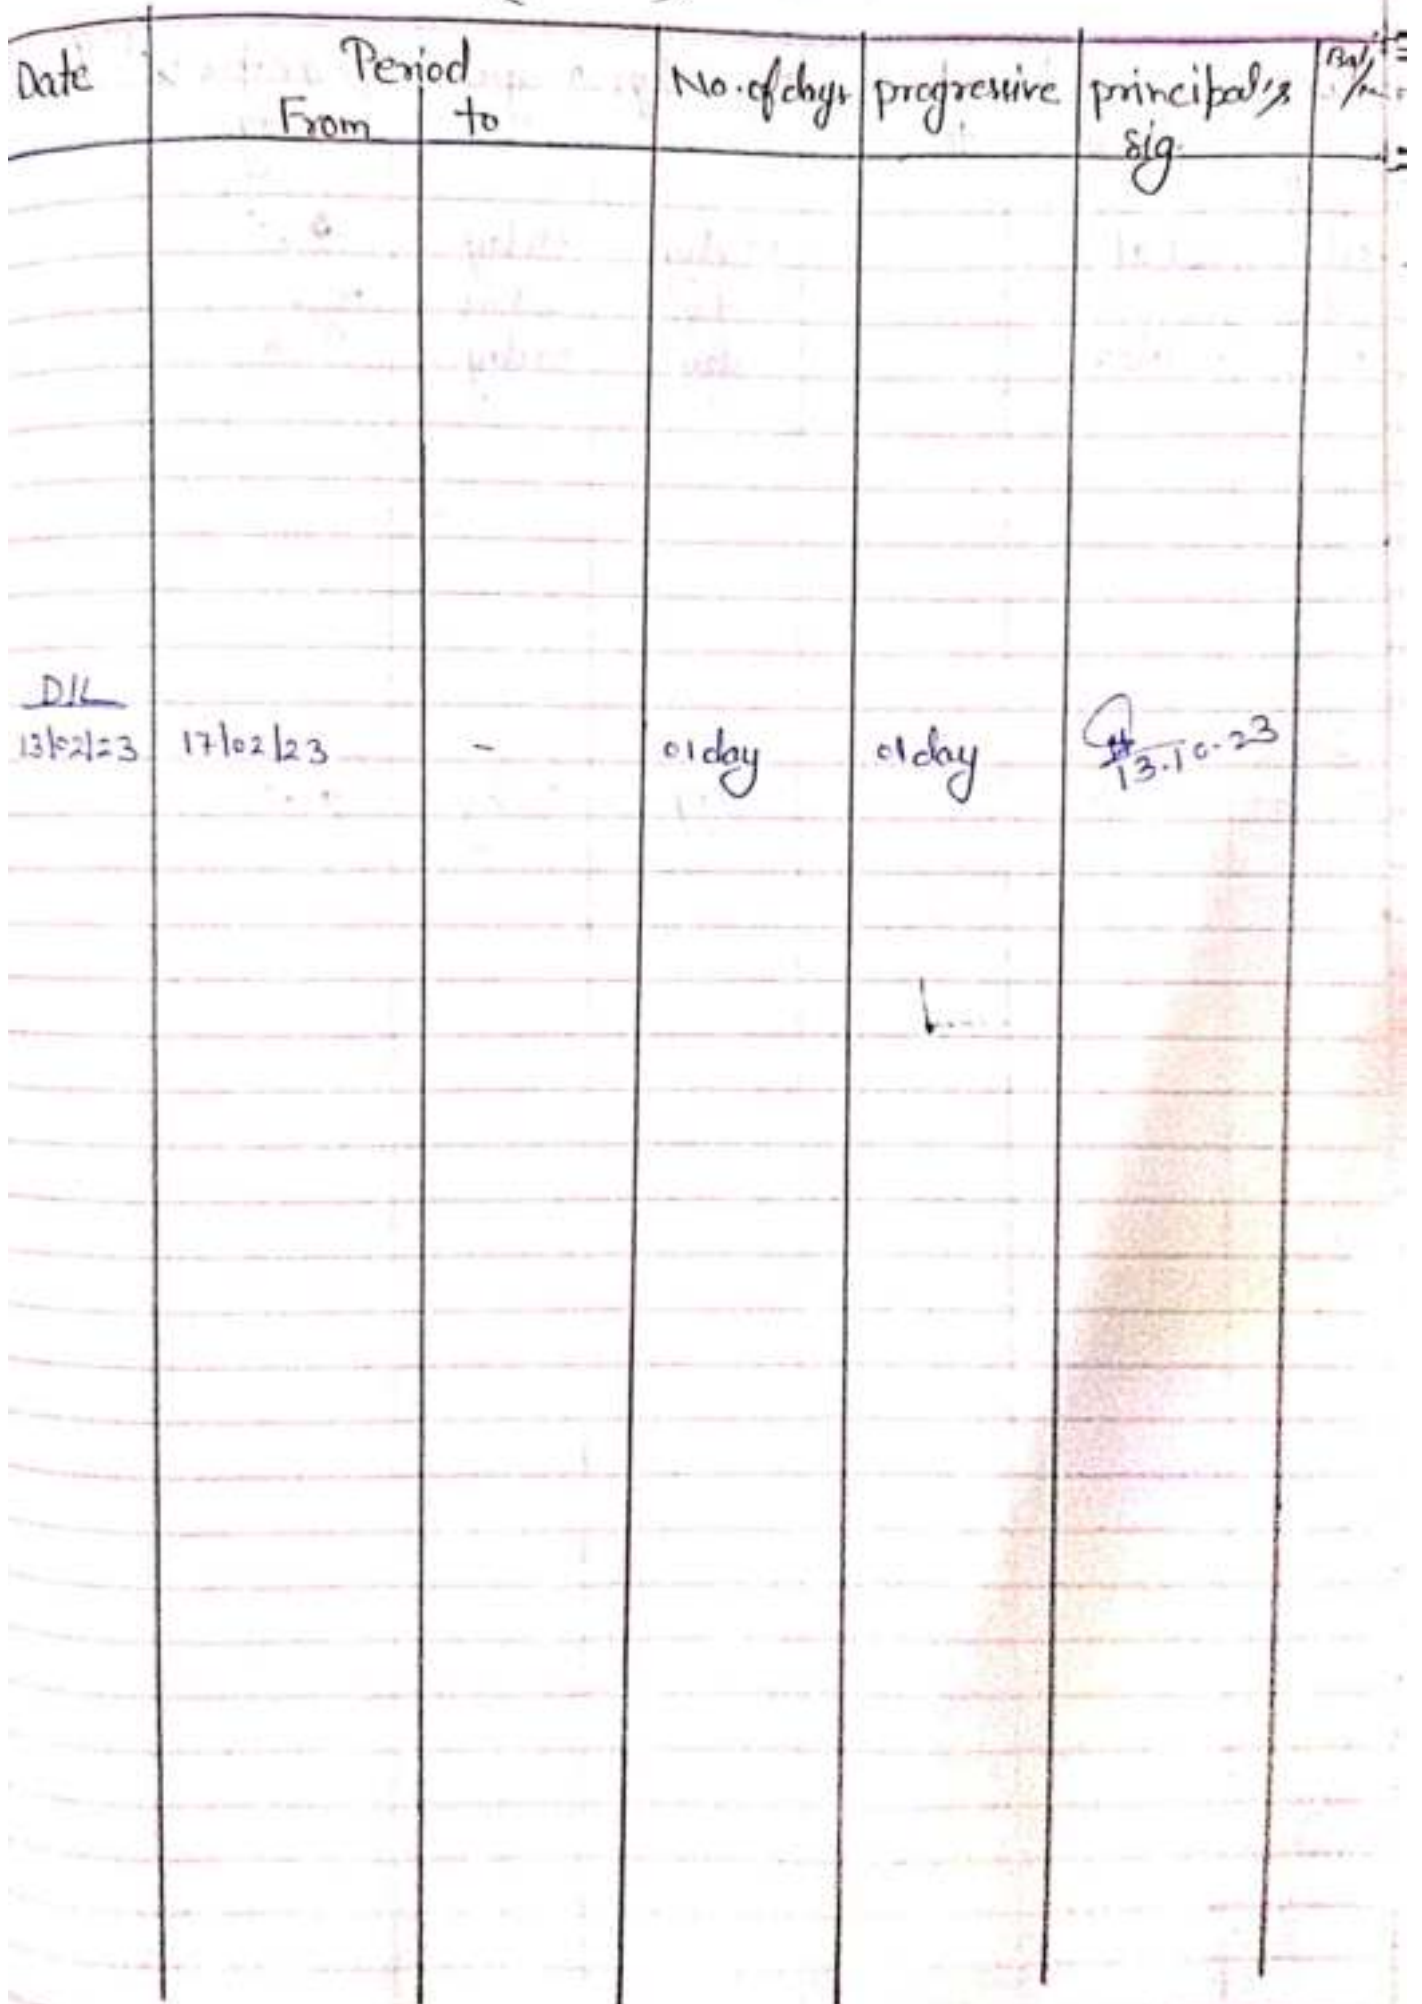 Date Period No. of days progressive principal's
From to sig.
D/L
13/02/23 17/02/23 - 01 day 01 day 13.10.23